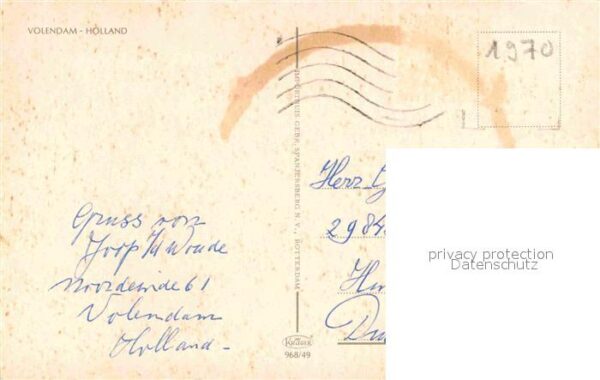 VOLENDAM - HOLLAND
1970
GEBR. SPANJERSBERG N.V., ROTTERDAM
Gruss von
Joop v/d Woude
Noordeinde 61
Volendam
Holland -
Herr
2984
privacy protection
Datenschutz
KRÜGER
968/49